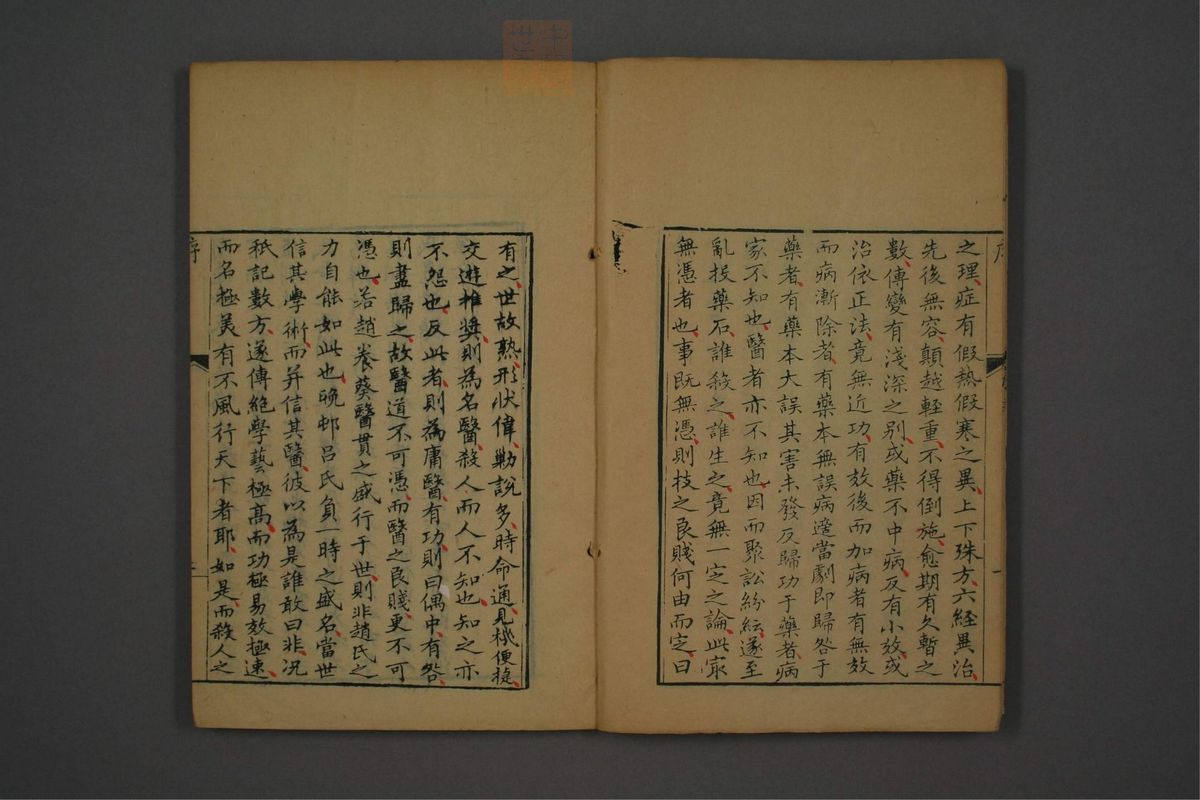 之理症有假熱假寒之異上下殊方六經異治
先後無容顛越輕重不得倒施愈期有久暫之
數傳變有淺深之別或藥不中病反有小效或
治依正法竟無近功有效後而加病者有無效
而病漸除者有藥本無誤病適當劇即歸咎于
藥者有藥本大誤其害未發反歸功于藥者病
家不知也醫者亦不知也因而聚訟紛紜遂至
亂投藥石誰殺之誰生之竟無一定之論此寂
無憑者也事既無憑則技之良賤何由而定曰
有之世故熟形狀偉勦說多時命通見機便捷
交遊推奬則為名醫殺人而人不知也知之亦
不怨也反此者則為庸醫有功則曰偶中有咎
則盡歸之故醫道不可憑而醫之良賤更不可
憑也若趙養葵醫貫之盛行于世則非趙氏之
力自能如此也晚邨呂氏負一時之盛名當世
信其學術而并信其醫彼以為是誰敢曰非况
秖記數方遂傳絕學藝極高而功極易效極速
而名極美有不風行天下者耶如是而殺人之
序